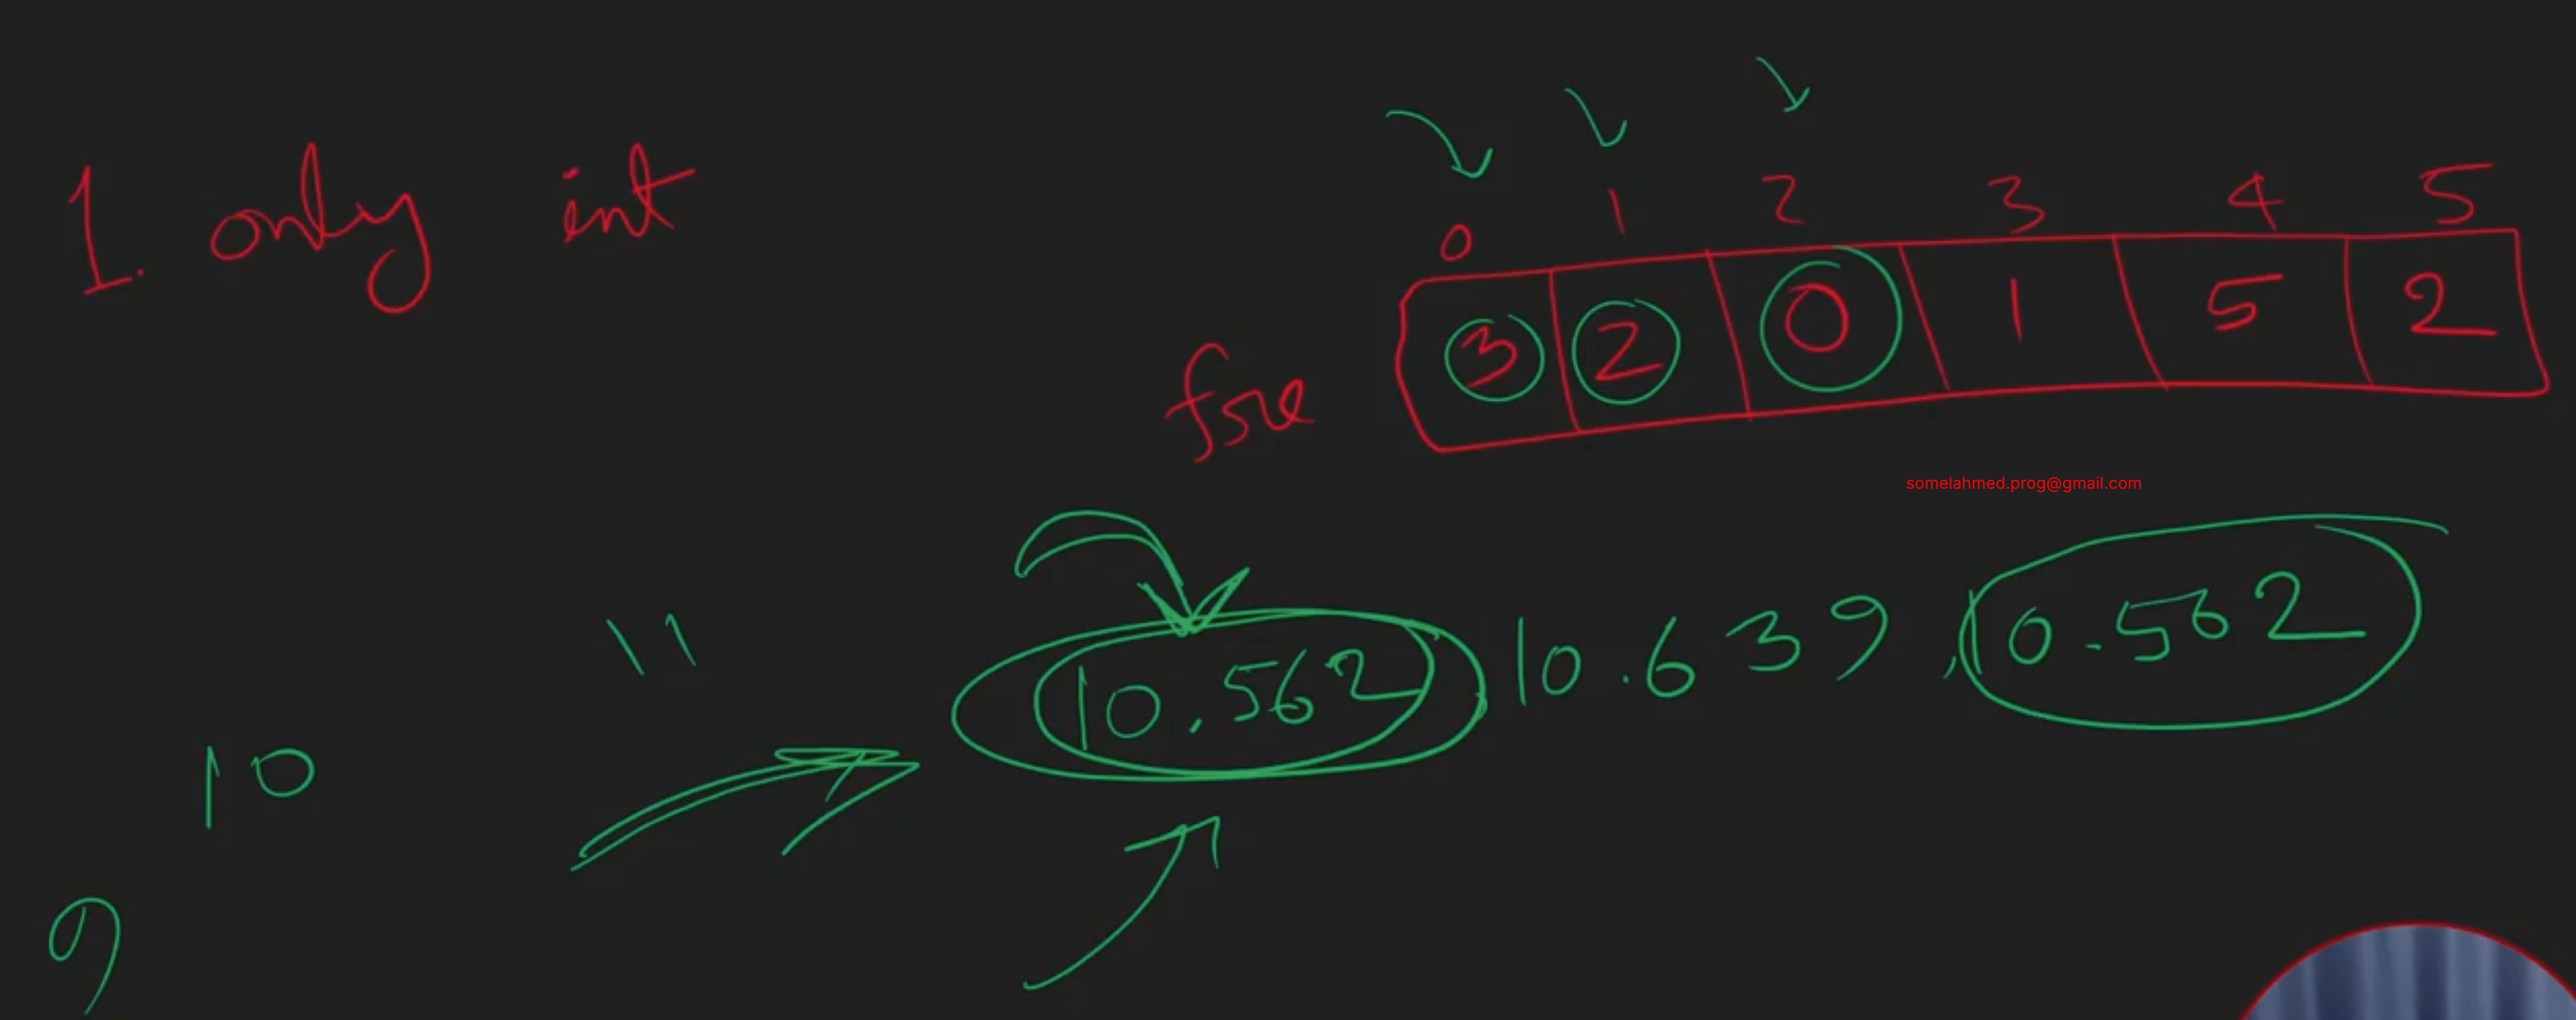 1. only int
0 1 2 3 4 5
fre 3 2 0 1 5 2
somelahmed.prog@gmail.com
11 10.562 10.639, 10.562
10
9